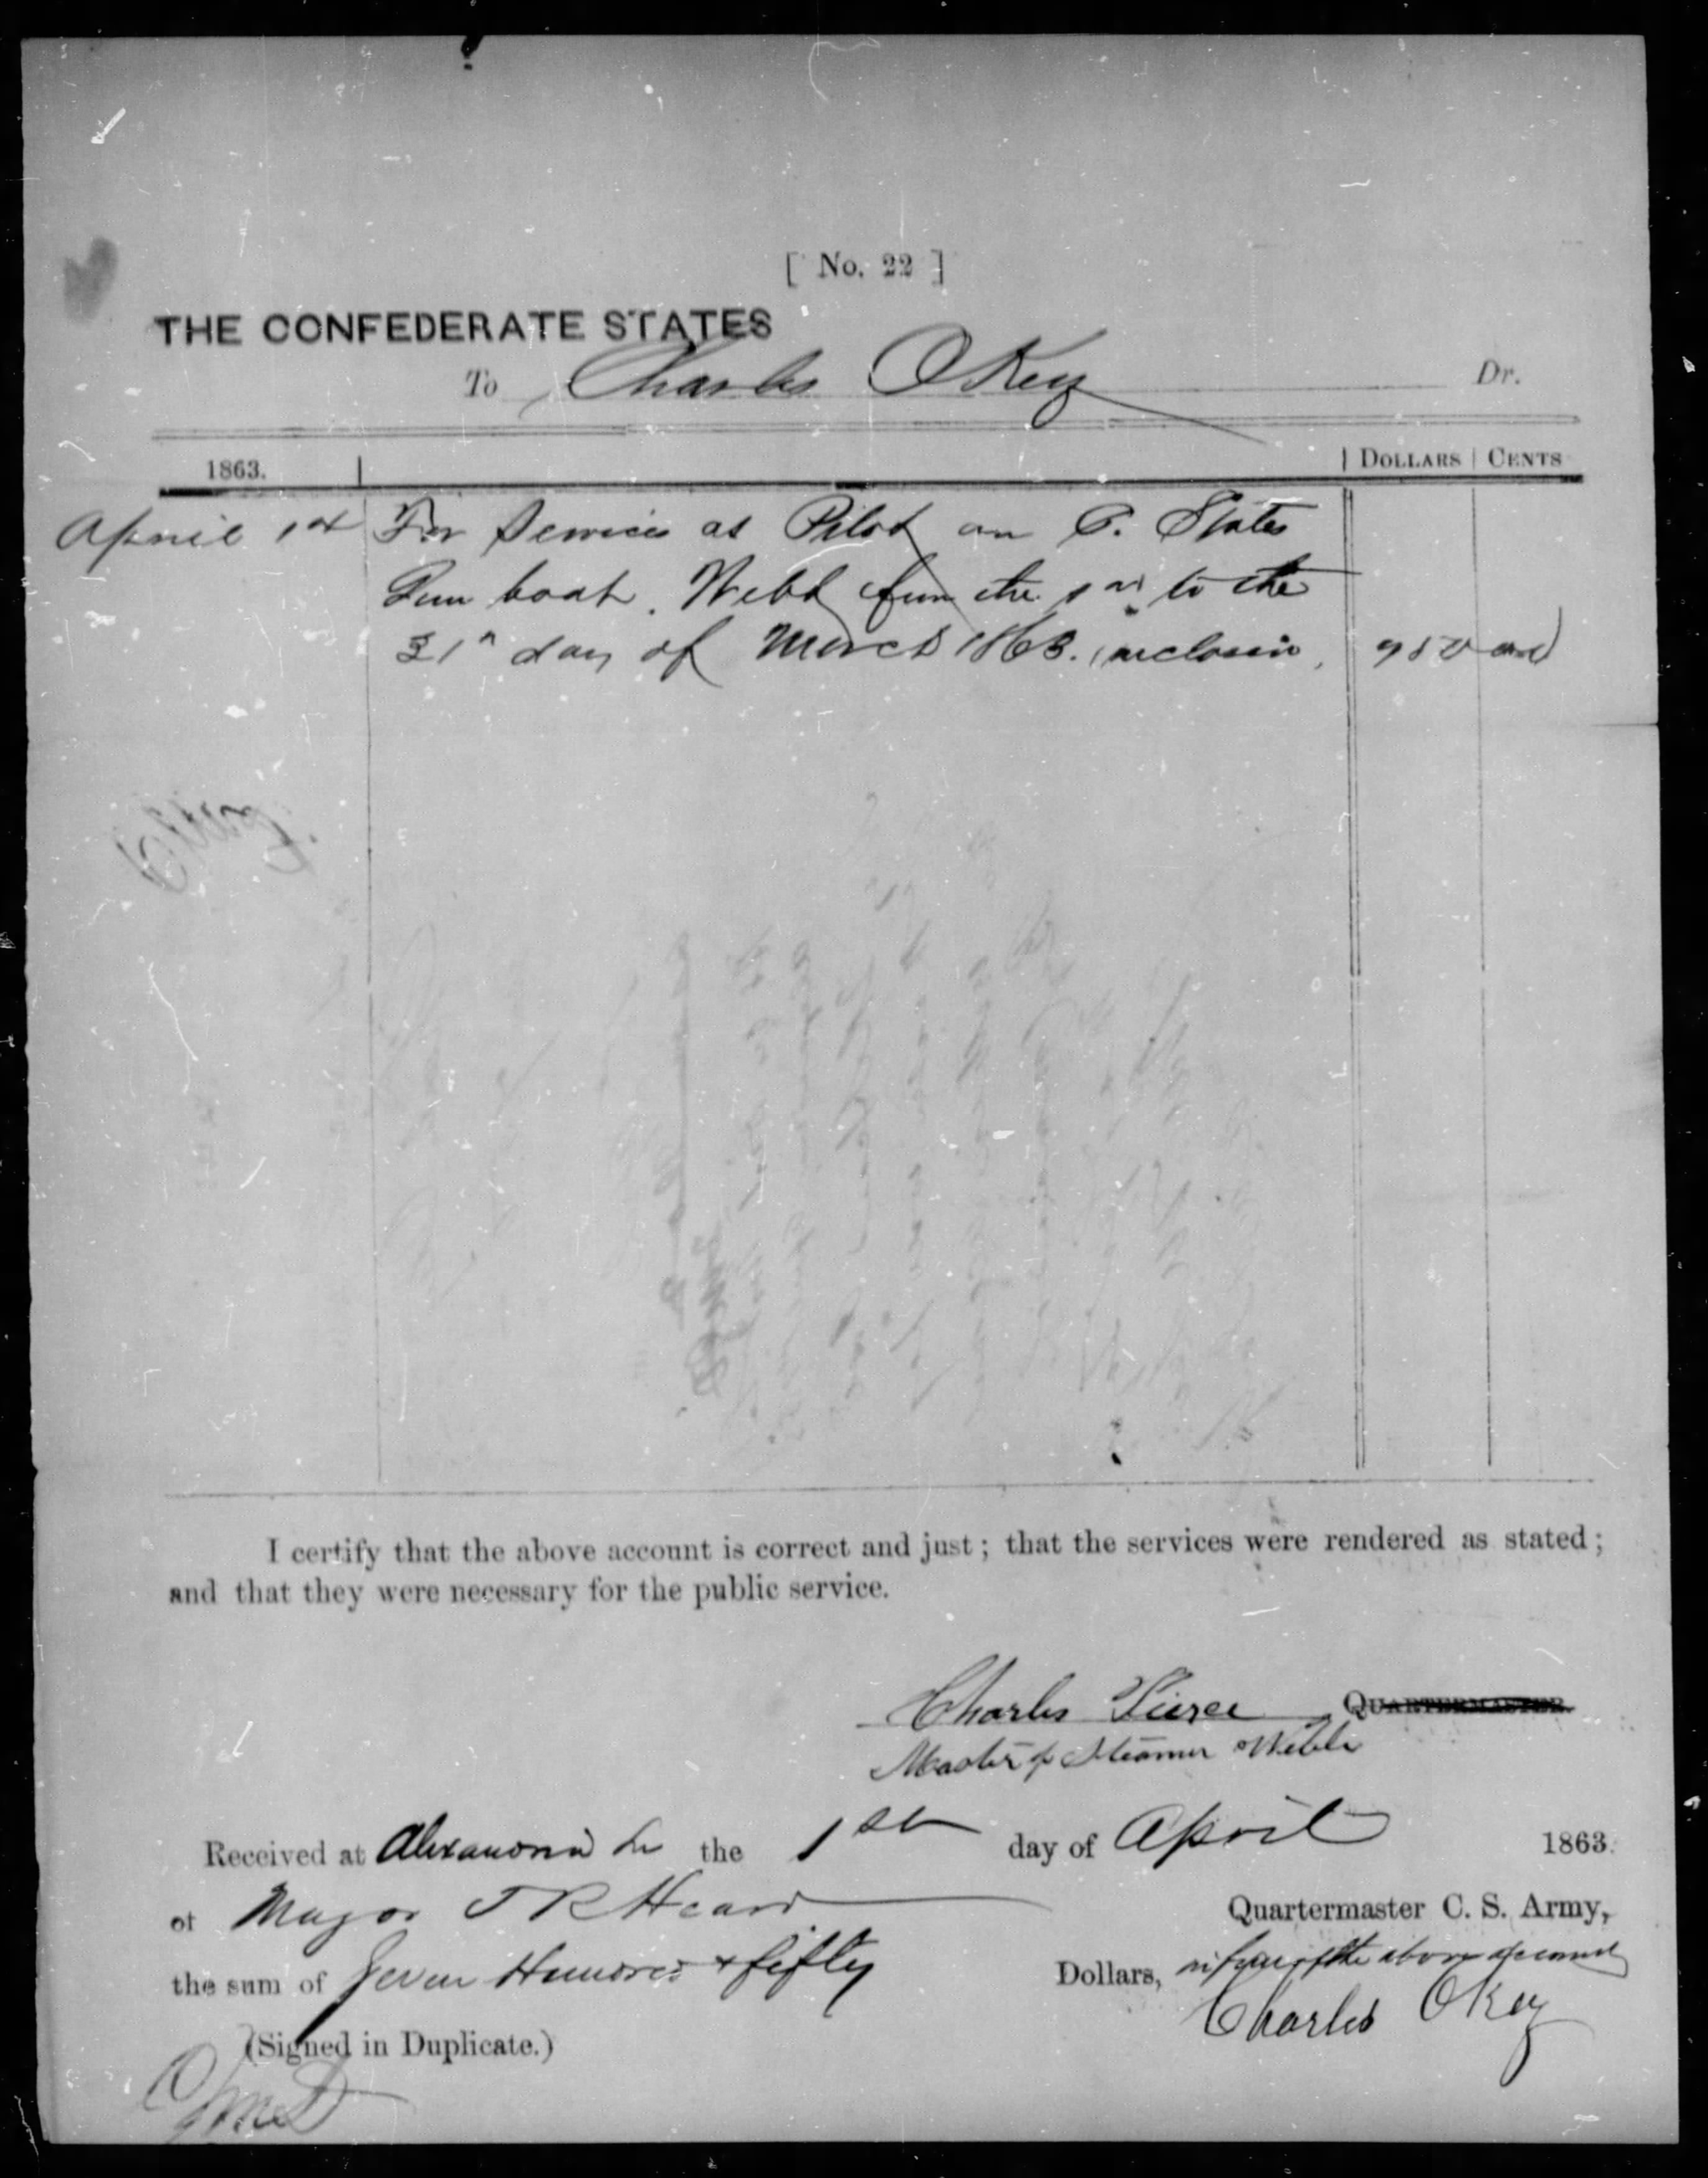 [ No. 22 ]
THE CONFEDERATE STATES
To Charles OKey Dr.
1863. DOLLARS CENTS
April 1st For Services as Pilot on C. States
Gun boat. Webb from the 1st to the
31st day of March 1863. inclusive, 750 00
I certify that the above account is correct and just; that the services were rendered as stated;
and that they were necessary for the public service.
Charles Pierce QUARTERMASTER
Master of Steamer Webb
Received at Alexandria La the 1st day of April 1863.
of Major T R Heard Quartermaster C. S. Army,
the sum of Seven Hundred & fifty Dollars, in full of the above account
Charles OKey
(Signed in Duplicate.)